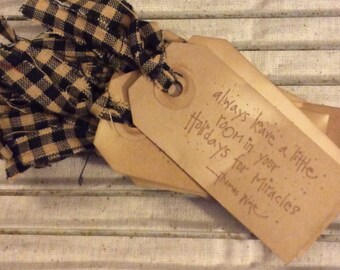 always leave a little
room in your
Holidays for Miracles